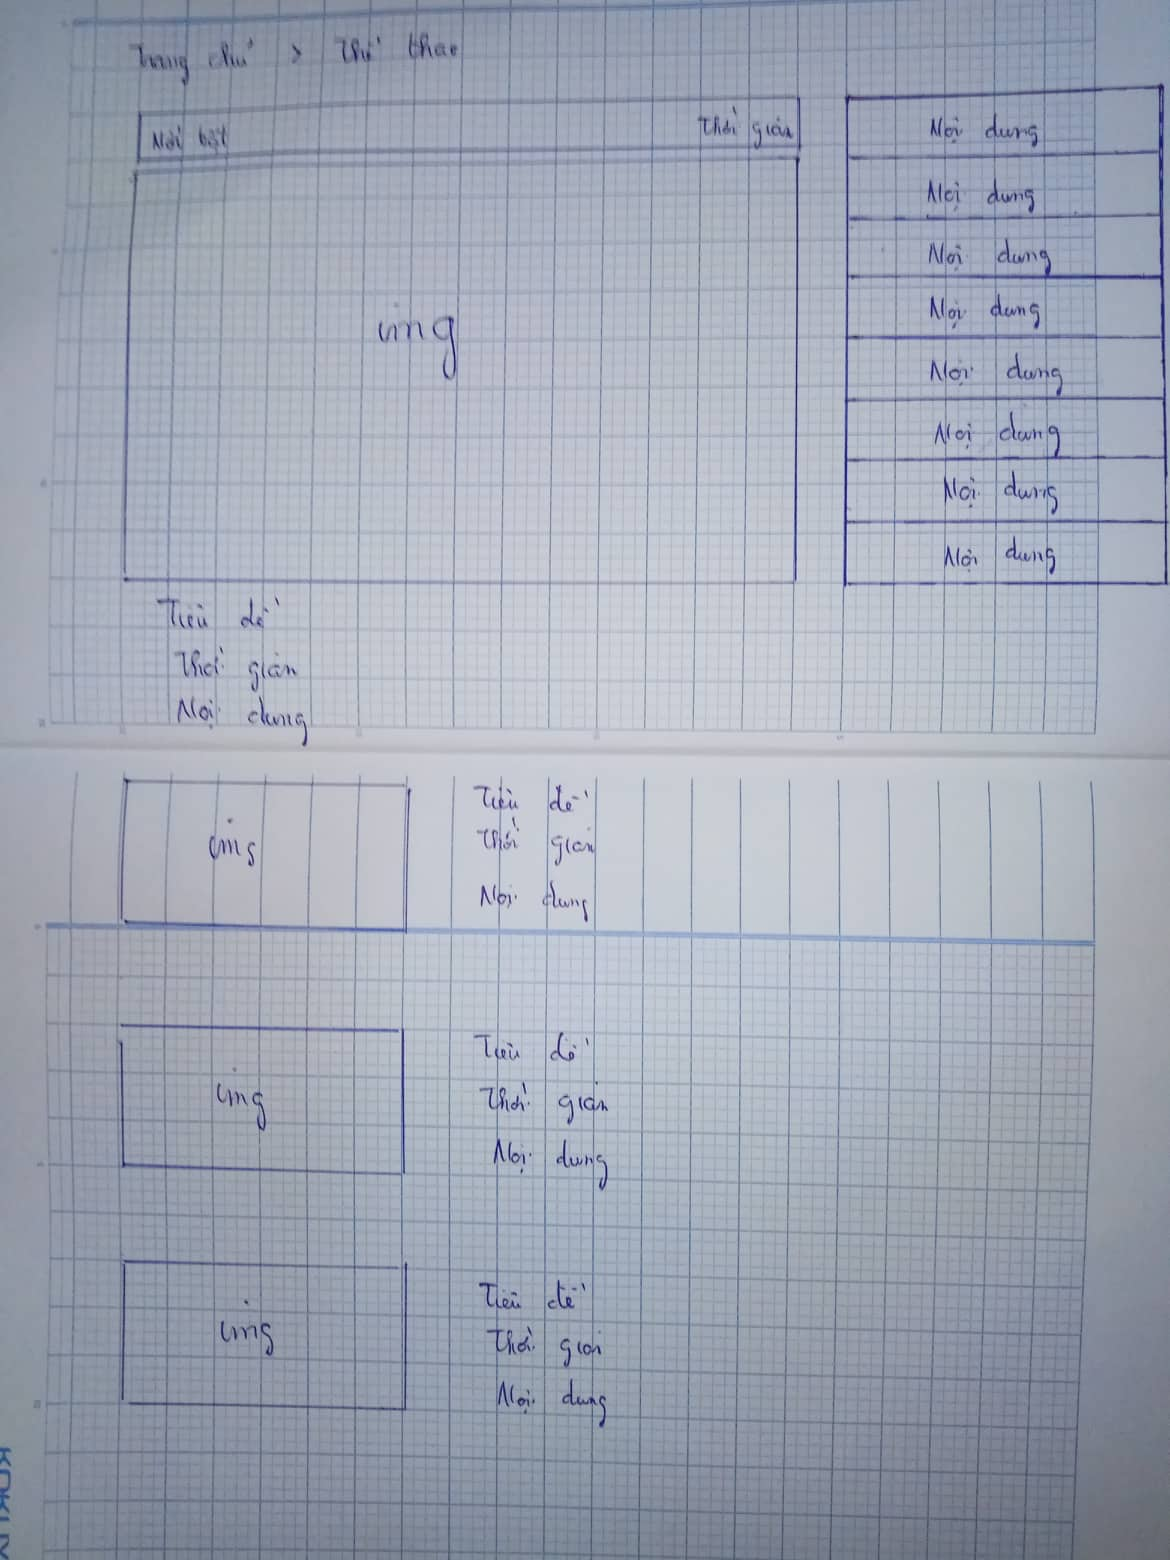 Trang chủ > Thể thao
Nổi bật Thời gian
img
Nội dung
Nội dung
Nội dung
Nội dung
Nội dung
Nội dung
Nội dung
Nội dung
Tiêu đề
Thời gian
Nội dung
img
Tiêu đề
Thời gian
Nội dung
img
Tiêu đề
Thời gian
Nội dung
img
Tiêu đề
Thời gian
Nội dung